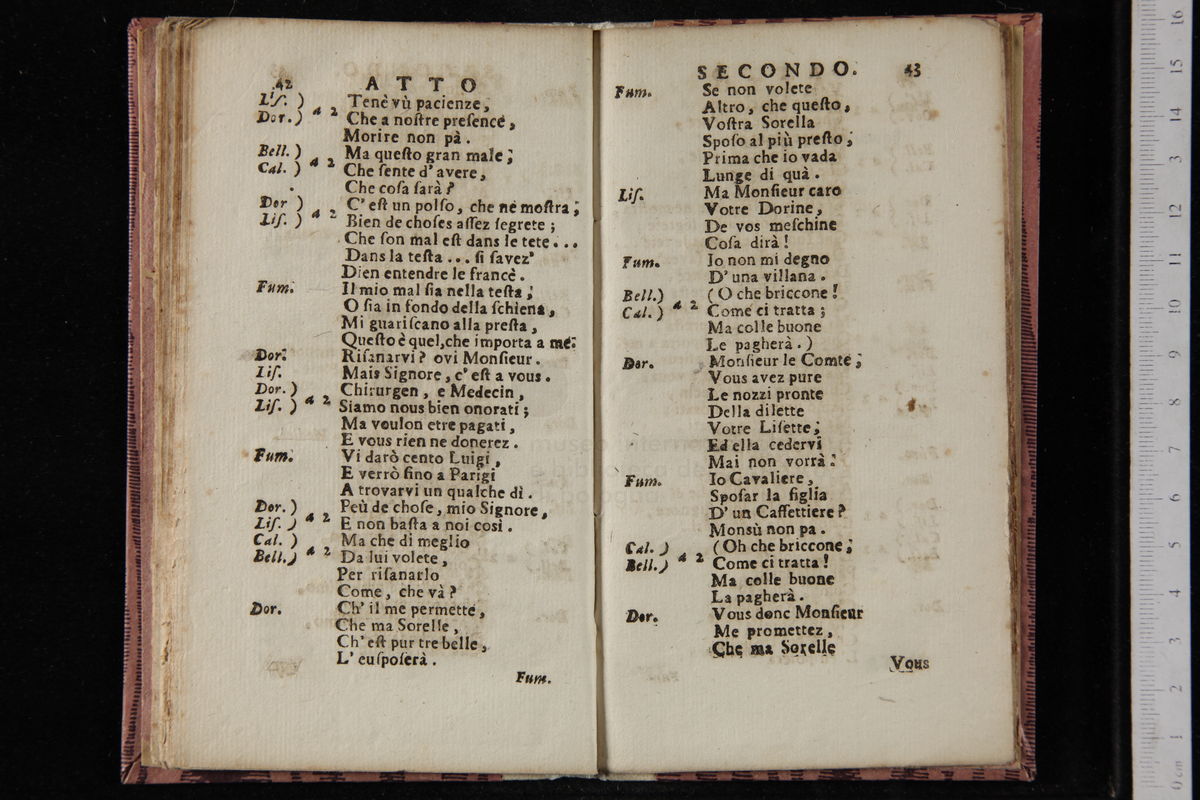 42 ATTO
Lis. ) a 2 Tenè vù pacienze,
Dor. ) Che a nostre presence,
Morire non pà.
Bell. ) a 2 Ma questo gran male;
Cal. ) Che sente d'avere,
Che cosa sarà?
Dor ) a 2 C'est un polso, che ne mostra;
Lis. ) Bien de choses assez segrete;
Che son mal est dans le tete...
Dans la testa... si savez'
Dien entendre le francè.
Fum. Il mio mal sia nella testa;
O sia in fondo della schiena,
Mi guariscano alla presta,
Questo è quel, che importa a me.
Dor. Risanarvi? ovi Monsieur.
Lis. Mais Signore, c'est a vous.
Dor. ) a 2 Chirurgen, e Medecin,
Lis. ) Siamo nous bien onorati;
Ma voulon etre pagati,
E vous rien ne donerez.
Fum. Vi darò cento Luigi,
E verrò fino a Parigi
A trovarvi un qualche dì.
Dor. ) a 2 Peù de chose, mio Signore,
Lis. ) E non basta a noi così.
Cal. ) a 2 Ma che di meglio
Bell. ) Da lui volete,
Per risanarlo
Come, che và?
Dor. Ch'il me permette,
Che ma Sorelle,
Ch'est pur tre belle,
L'eusposerà.
Fum.
SECONDO. 43
Fum. Se non volete
Altro, che questo,
Vostra Sorella
Sposo al più presto;
Prima che io vada
Lunge di quà.
Lis. Ma Monsieur caro
Votre Dorine,
De vos meschine
Cosa dirà!
Fum. Io non mi degno
D'una villana.
Bell.) a 2 (O che briccone!
Cal. ) Come ci tratta;
Ma colle buone
Le pagherà.)
Dor. Monsieur le Comte;
Vous avez pure
Le nozzi pronte
Della dilette
Votre Lisette;
Ed ella cedervi
Mai non vorrà.
Fum. Io Cavaliere,
Sposar la figlia
D'un Caffettiere?
Monsù non pa.
Cal. ) a 2 (Oh che briccone;
Bell.) Come ci tratta!
Ma colle buone
La pagherà.
Dor. Vous donc Monsieur
Me promettez,
Che ma Sorelle
Vous